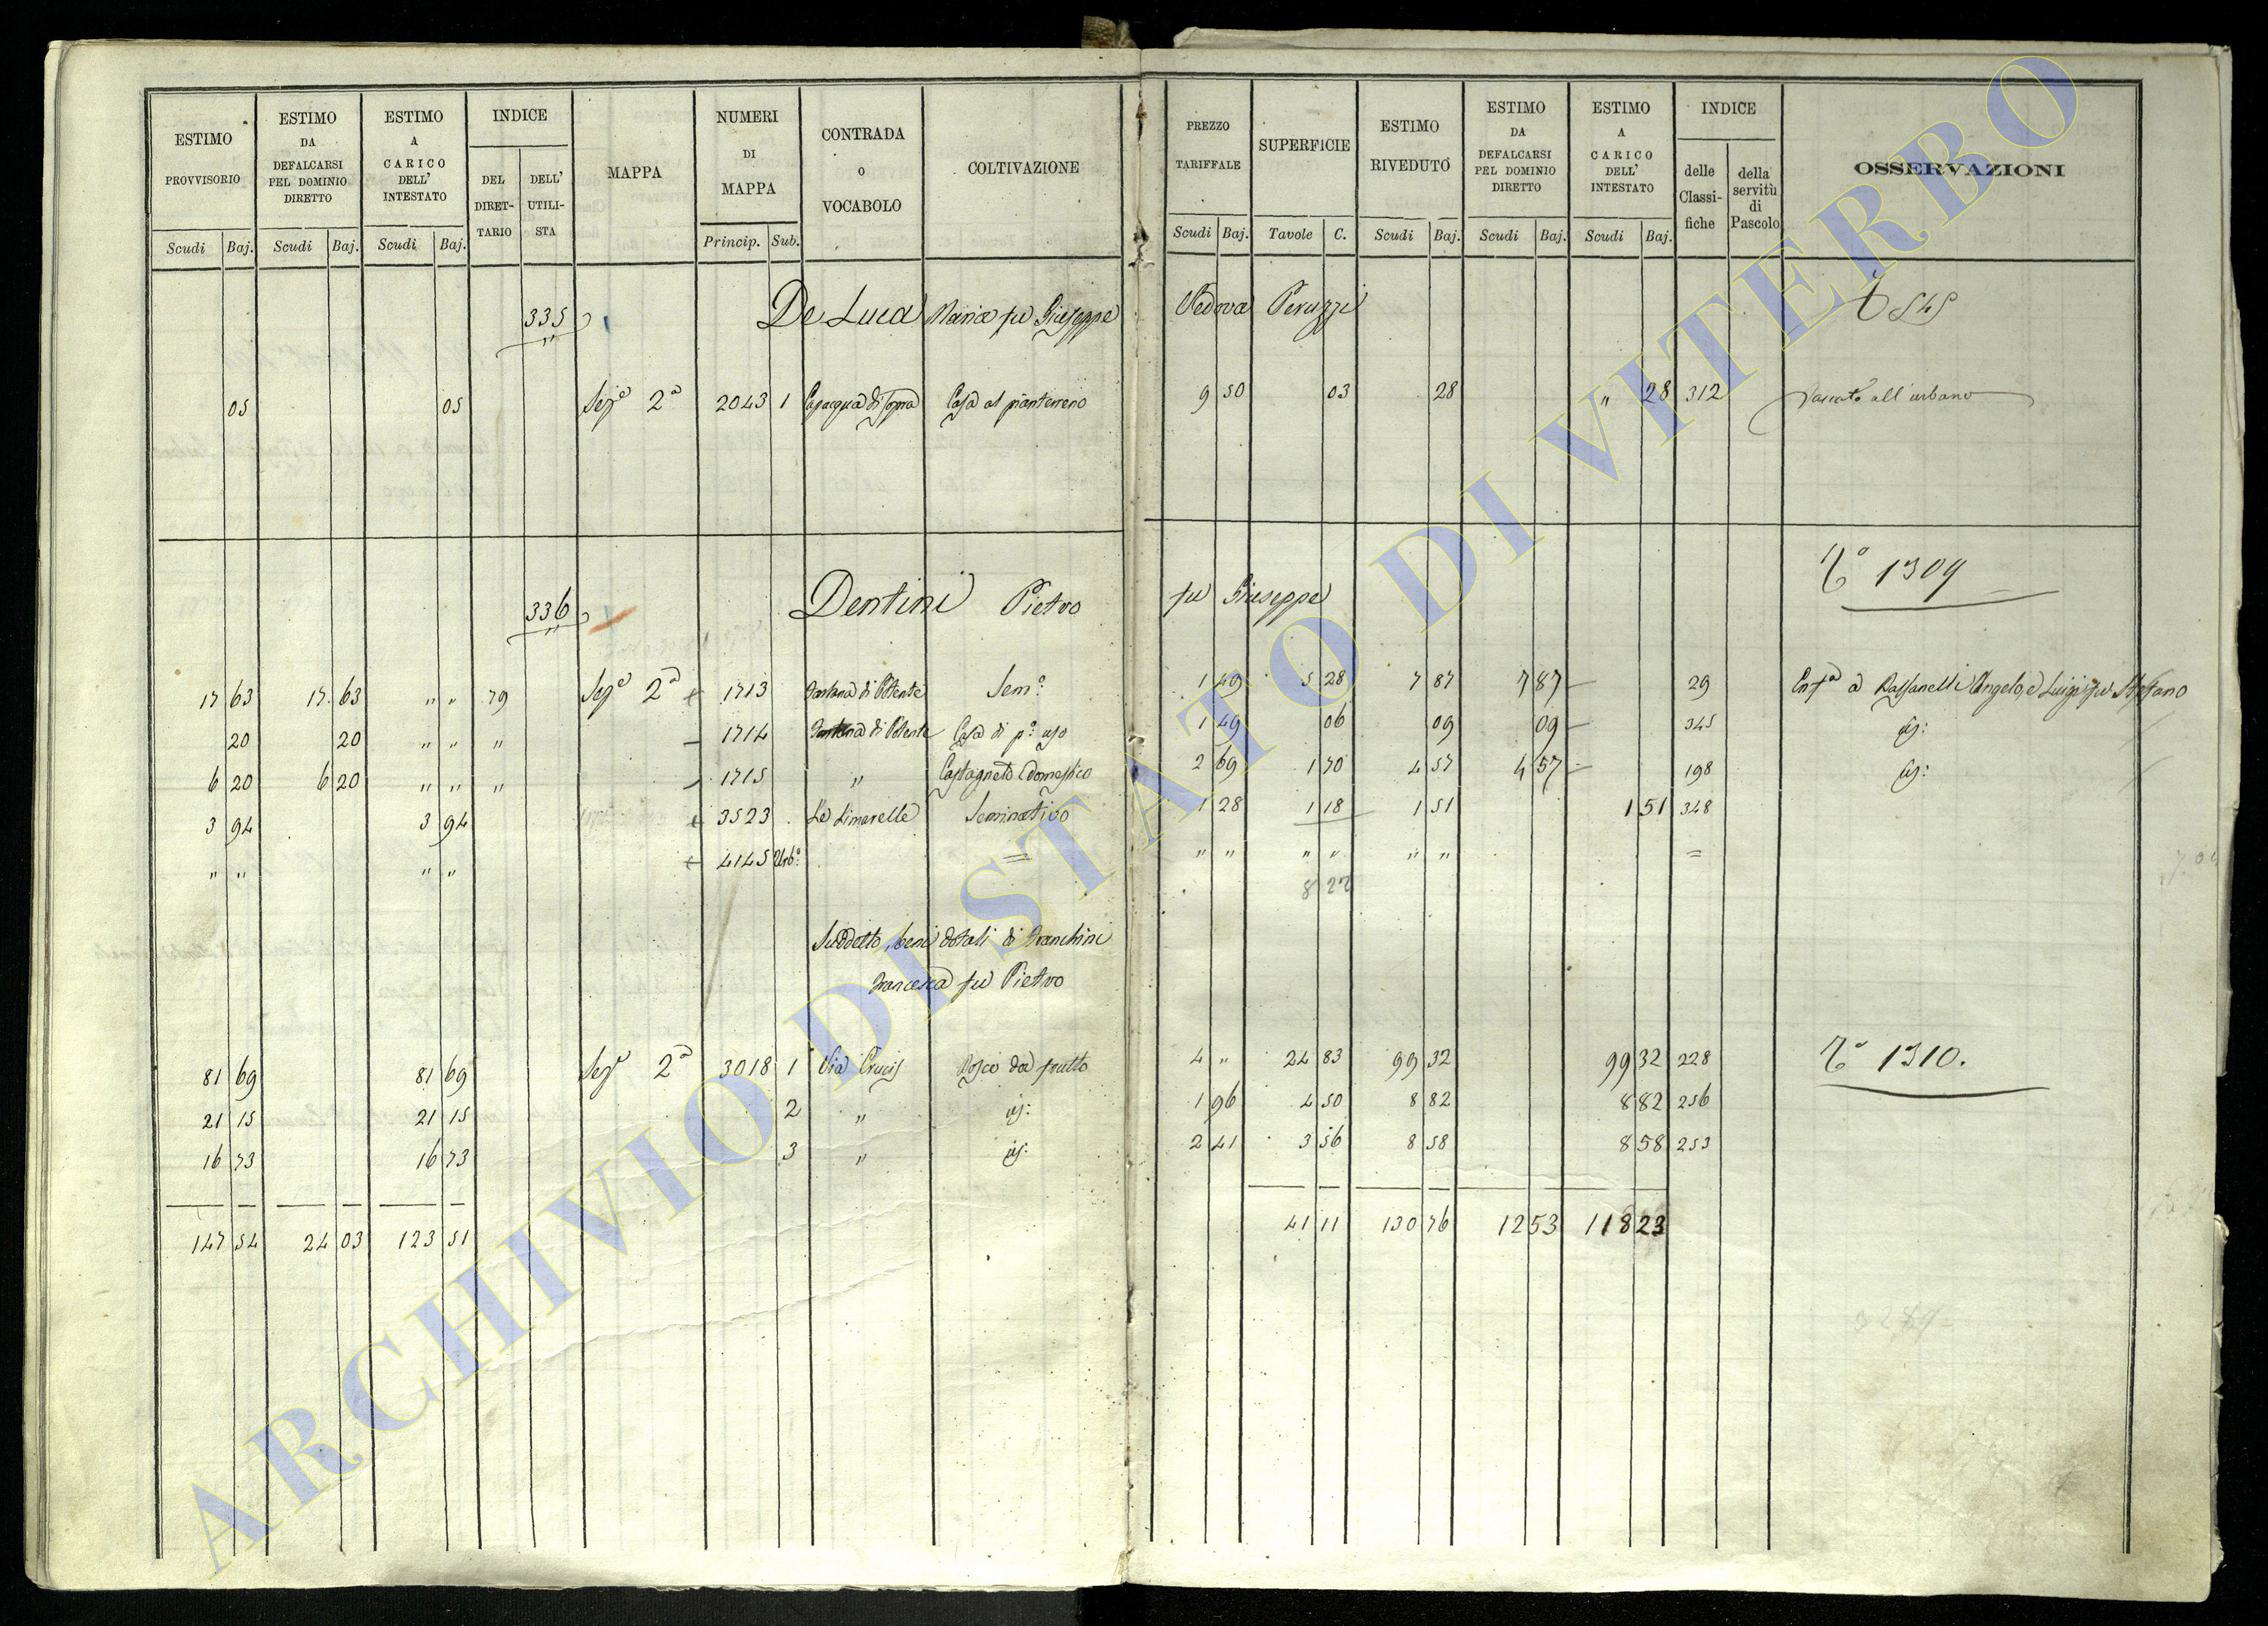 ESTIMO PROVVISORIO | ESTIMO DA DEFALCARSI PEL DOMINIO DIRETTO | ESTIMO A CARICO DELL' INTESTATO | INDICE | MAPPA | NUMERI DI MAPPA | CONTRADA O VOCABOLO | COLTIVAZIONE | PREZZO TARIFFALE | SUPERFICIE | ESTIMO RIVEDUTO | ESTIMO DA DEFALCARSI PEL DOMINIO DIRETTO | ESTIMO A CARICO DELL' INTESTATO | INDICE | OSSERVAZIONI
DEL DIRET-TARIO | DELL' UTILI-STA | delle Classi-fiche | della servitù di Pascolo
Scudi Baj. | Scudi Baj. | Scudi Baj. | Princip. Sub. | Scudi Baj. | Tavole C. | Scudi Baj. | Scudi Baj. | Scudi Baj.
335 De Luca Maria fu Giuseppe Vedova Peruzzi
05 05 Sez.e 2a 2043 1 Capacqua di Sopra Casa al pianterreno 9 50 03 28 " 28 312 all'urbano
336 Dentini Pietro fu Giuseppe No 1309
17 63 17 63 " " 79 Sez.e 2a 1713 Fontana di Potente Sem.o 1 49 5 28 7 87 7 87 29 Enf.a a Raffanelli Angelo, e Luigi fu Stefano
20 20 " " " 1714 Fontana di Potente Casa di p.o uso 1 49 06 09 09 345 id:
6 20 6 20 " " " 1715 " Castagneto domestico 2 69 1 70 4 57 4 57 198 id:
3 94 3 94 3523 Le Limarelle Seminativo 1 28 1 18 1 51 1 51 348
" " " " 4145 Urb.o = " " " " " " =
8 22
Suddetto, beni dotali di Franchini
Francesca fu Pietro
81 69 81 69 Sez.e 2a 3018 1 Via Crucis Bosco da frutto 4 " 24 83 99 32 99 32 228 No 1310.
21 15 21 15 2 " id: 1 96 4 50 8 82 8 82 256
16 73 16 73 3 " id: 2 41 3 56 8 58 8 58 253
147 54 24 03 123 51 41 11 130 76 12 53 118 23
ARCHIVIO DI STATO DI VITERBO